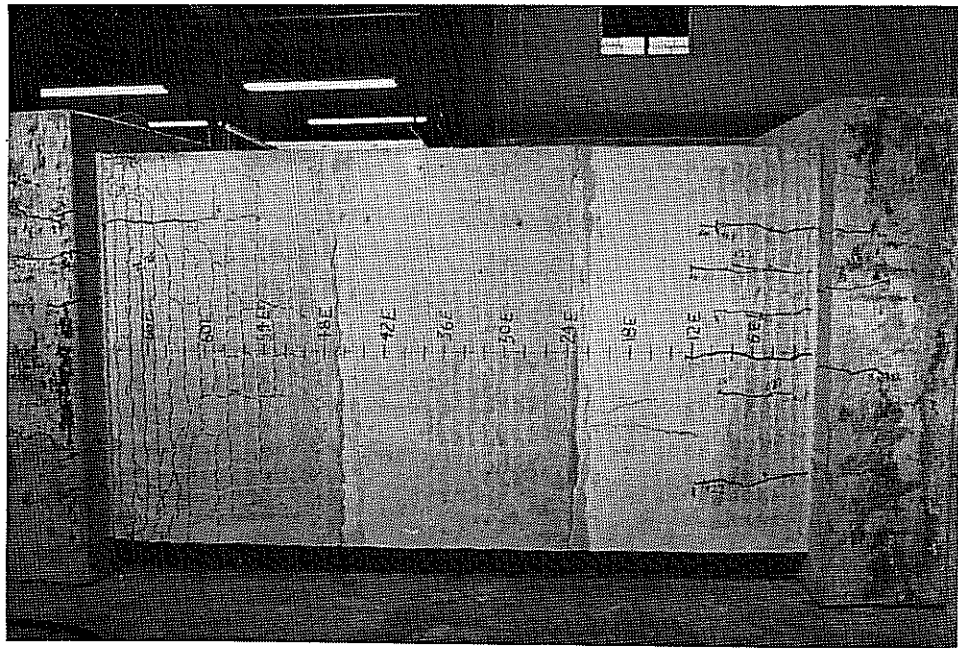 60E
54E
48E
42E
36E
30E
24E
18E
12E
6E